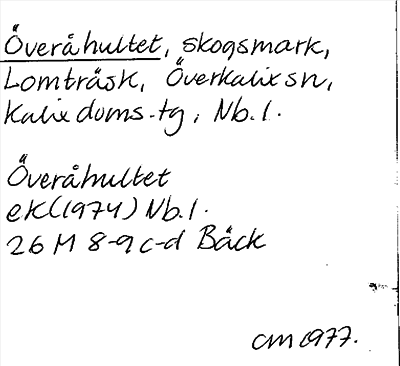 Överåhultet, skogsmark,
Lomträsk, Överkalix sn,
Kalix doms.tg, Nb.l.
Överåhultet
eK(1974) Nb.l.
26 M 8-9 c-d Bäck
CM 1977.